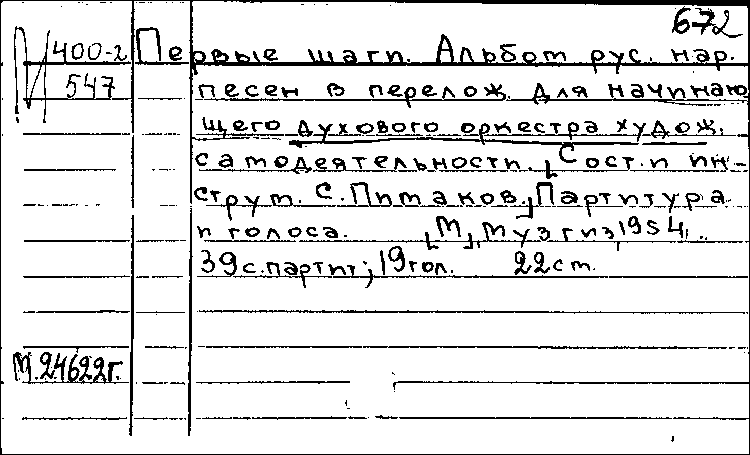 672
М 400-2 Первые шаги. Альбом рус. нар.
547 песен в перелож. для начинаю
щего духового оркестра худож.
самодеятельности. [Сост. и ин-
струм. С. Питаков.] Партитура
и голоса. [М.], Музгиз, 1954.
39 с. партит; 19 гол. 22 см.
М.24622г.